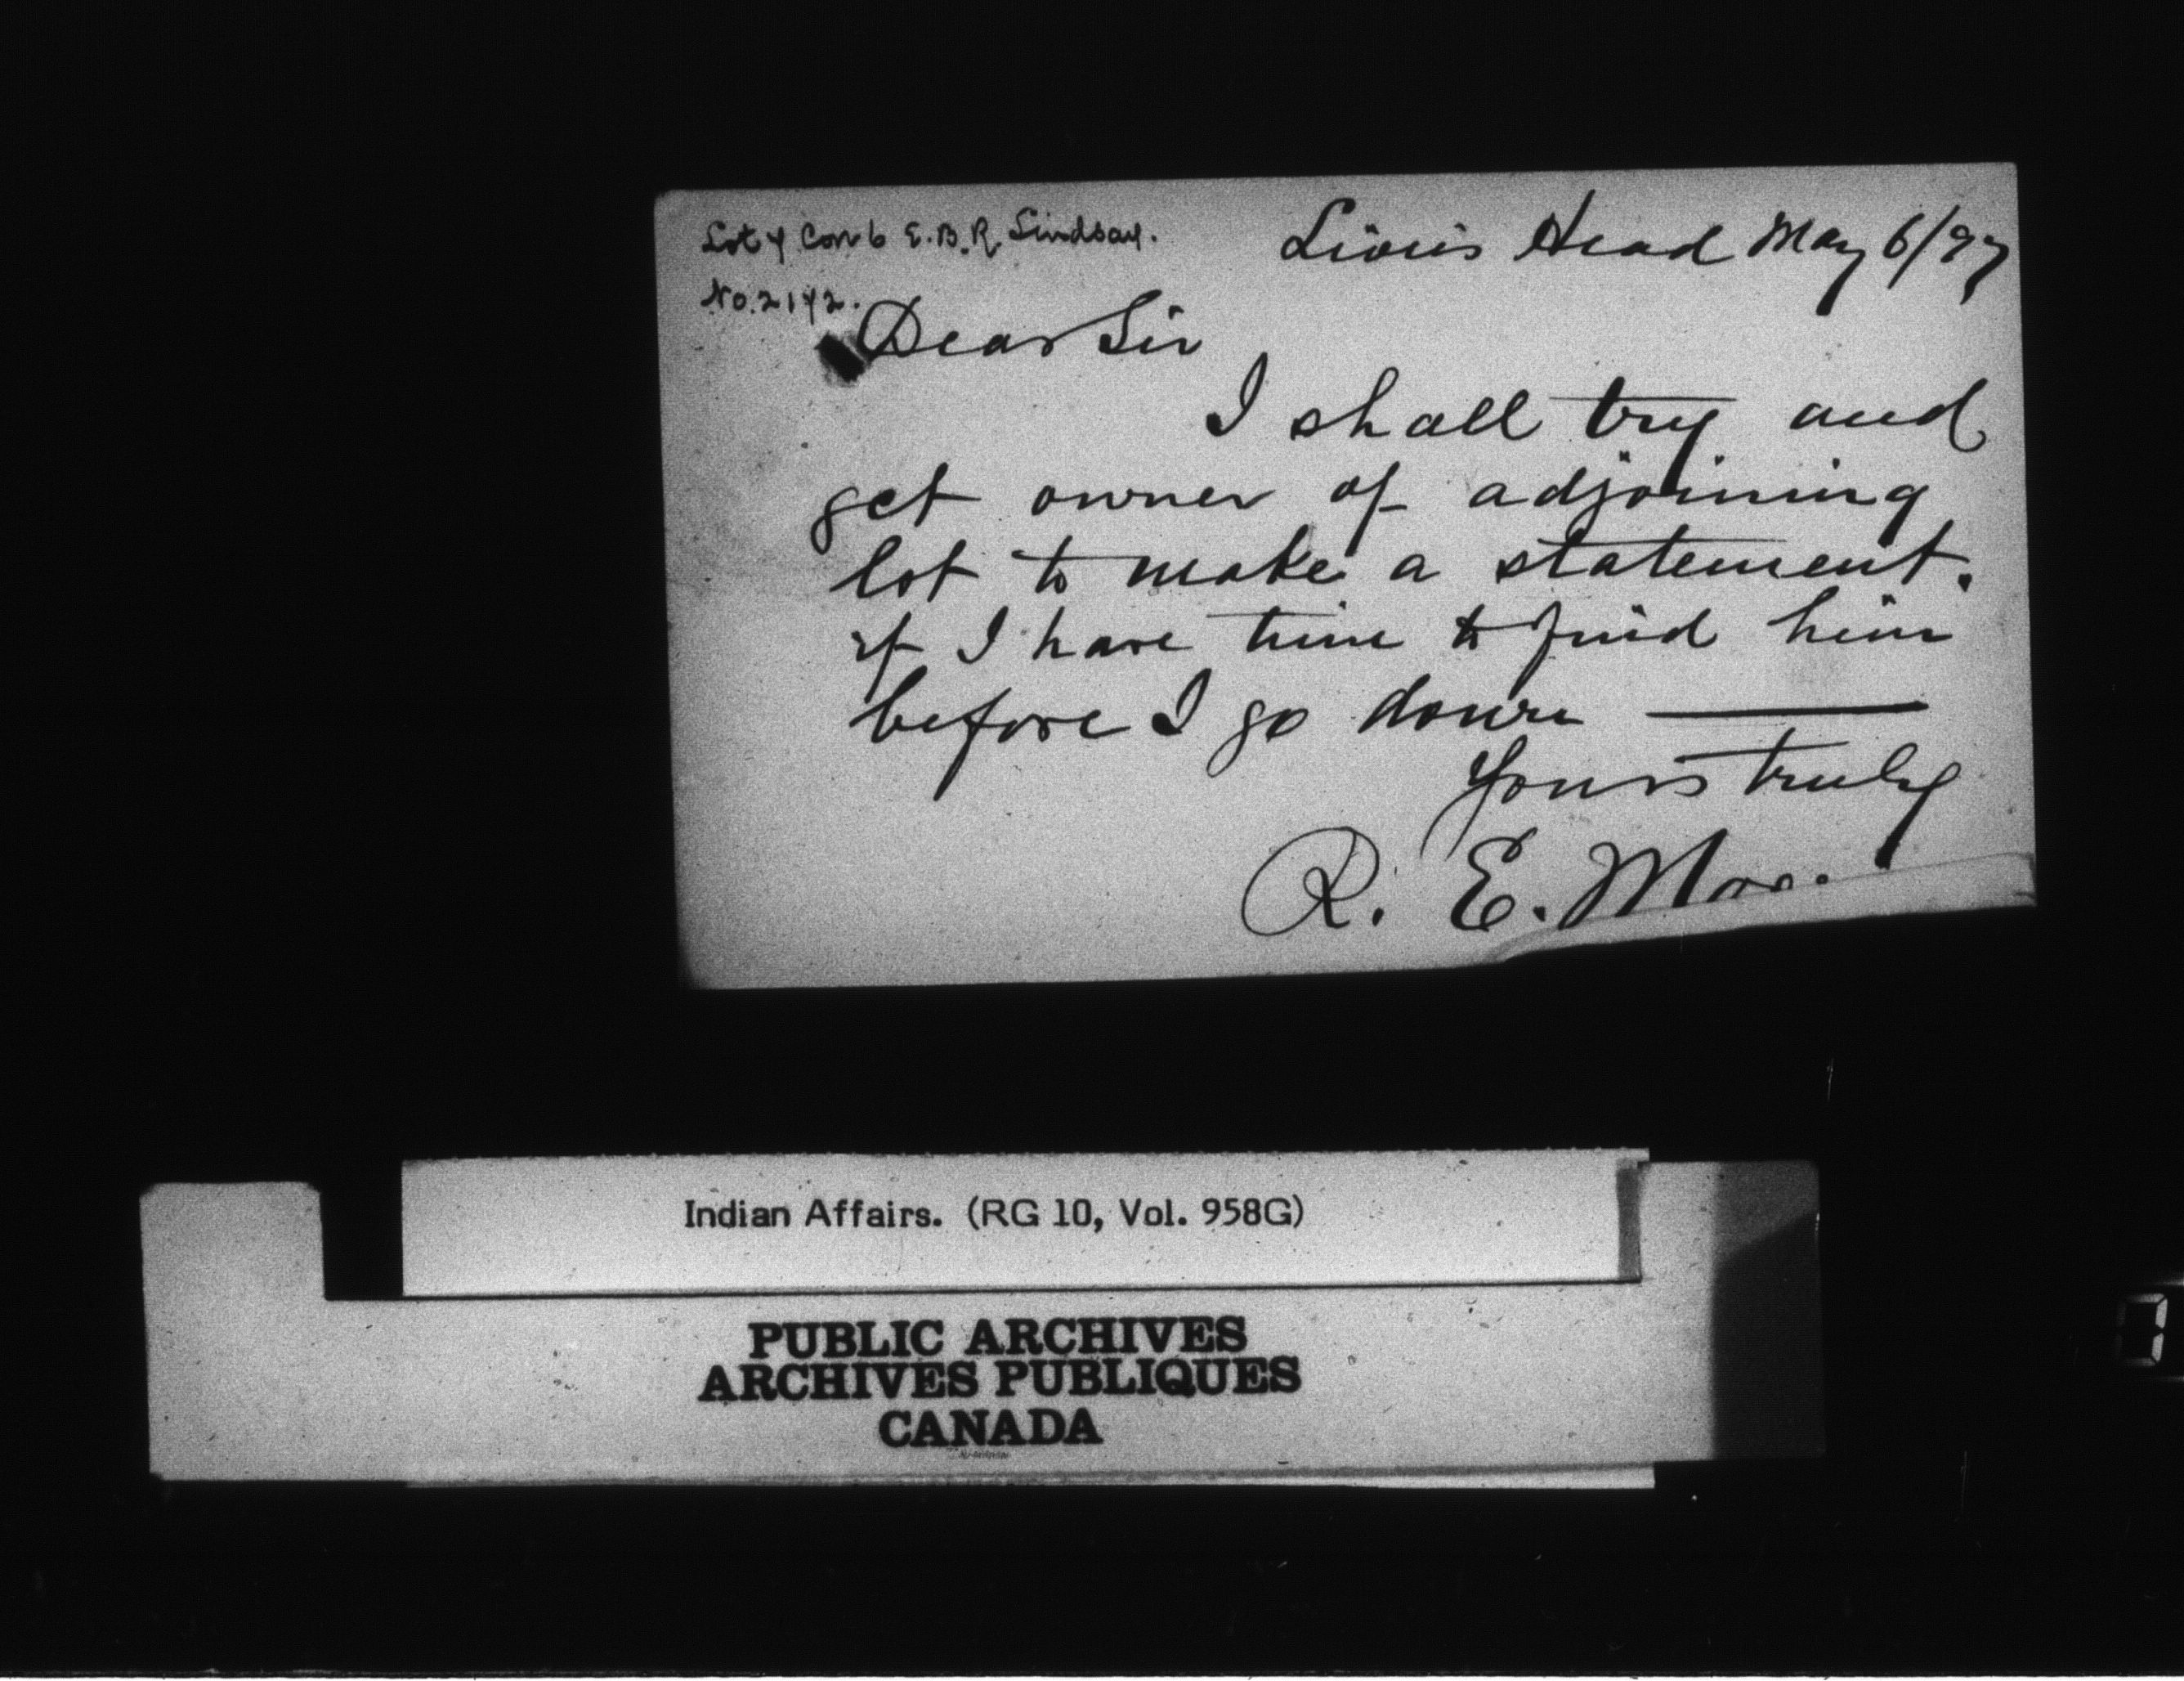 Lot 4 Con 6 E.B.R. Lindsay.
No. 2142.
Lion's Head May 6/97
Dear Sir
I shall try and
get owner of adjoining
lot to make a statement.
if I have time to find him
before I go down ———
Yours truly
R. E. Moore.
Indian Affairs. (RG 10, Vol. 958G)
PUBLIC ARCHIVES
ARCHIVES PUBLIQUES
CANADA